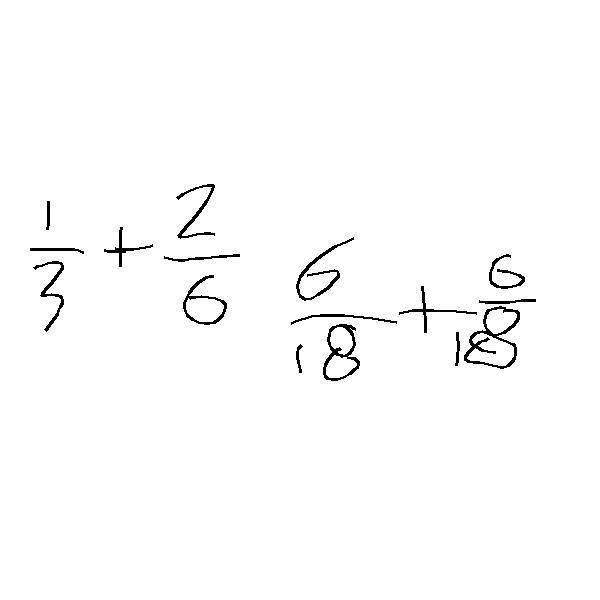 1/3 + 2/6
6/18 + 6/18